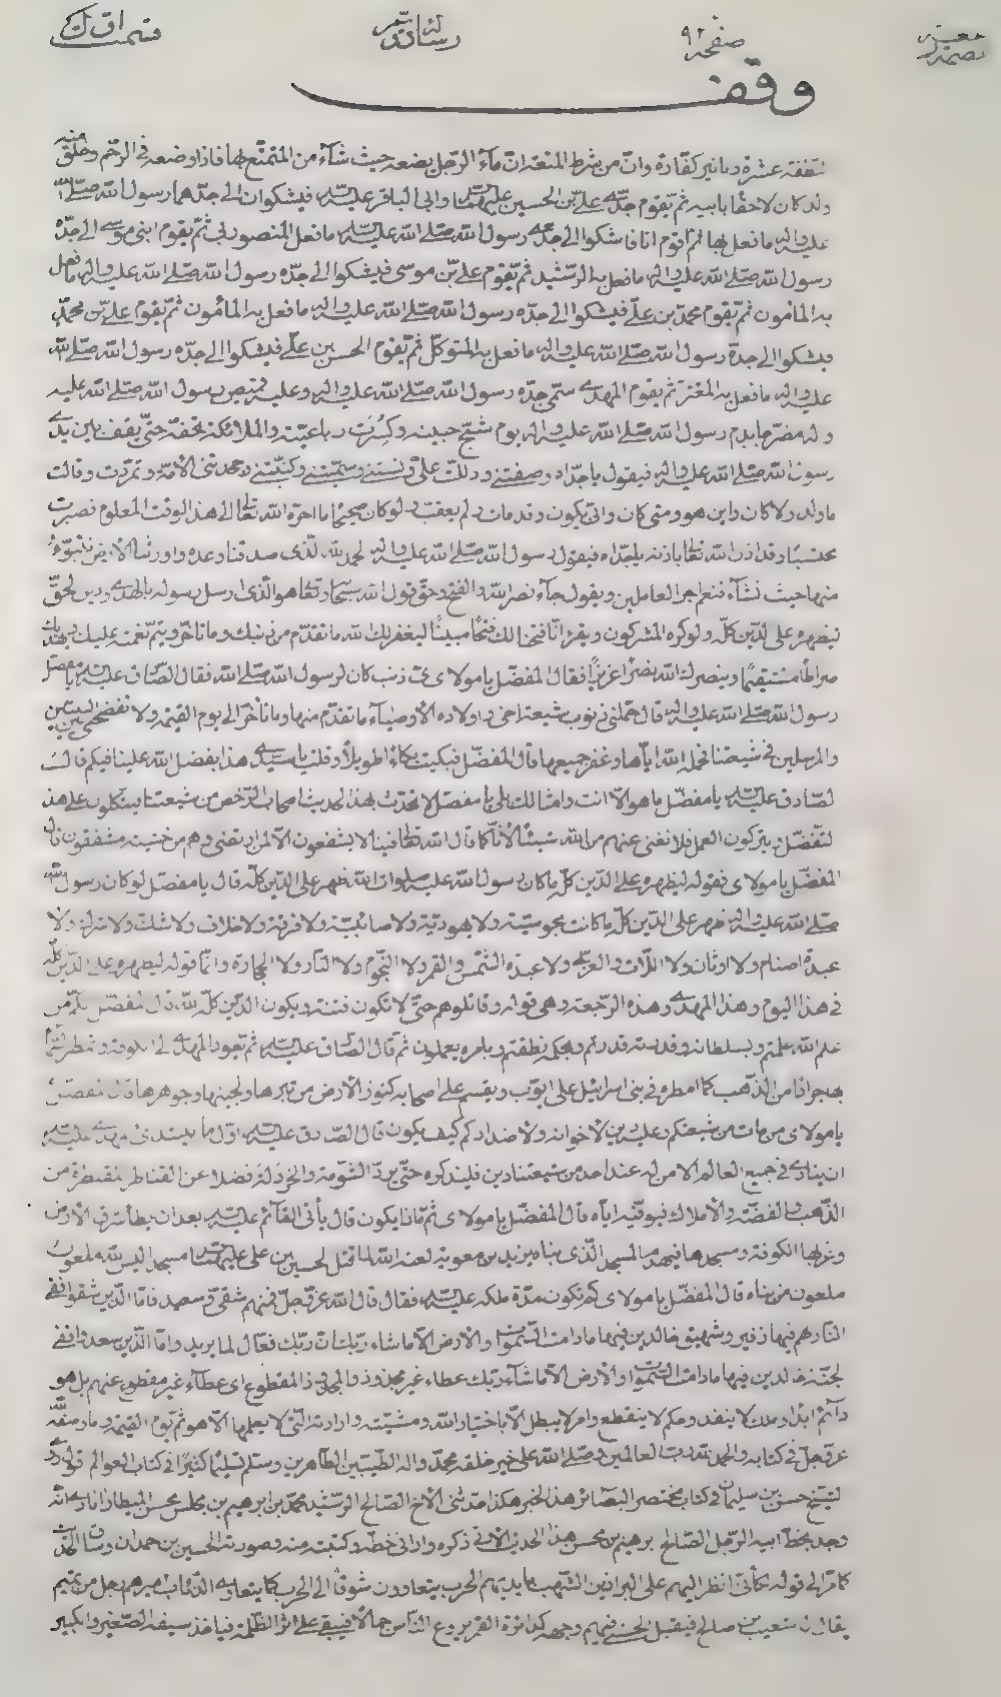 صفحه ۹۲
وقف
النفقة عشرة دنانير كفارة وان من شرط المتعة ان ماء الرجل يضعه حيث شاء من المتمتع بها فاذا وضعه في الرحم وخلق منه
ولد كان لاحقا بابيه ثم يقوم جدي علي بن الحسين عليهما وابي الباقر عليه السلام فيشكوان الى جدهما رسول الله صلى الله
عليه واله ما فعل بهما ثم اقوم انا فاشكوا الى جدي رسول الله صلى الله عليه واله ما فعل المنصور بي ثم يقوم ابني موسى الى جده
رسول الله صلى الله عليه واله ما فعل به الرشيد ثم يقوم علي بن موسى فيشكوا الى جده رسول الله صلى الله عليه واله ما فعل
به المأمون ثم يقوم محمد بن علي فيشكوا الى جده رسول الله صلى الله عليه واله ما فعل به المأمون ثم يقوم علي بن محمد
فيشكوا الى جده رسول الله صلى الله عليه واله ما فعل به المتوكل ثم يقوم الحسن بن علي فيشكوا الى جده رسول الله صلى الله
عليه واله ما فعل به المعتز ثم يقوم المهدي سمي جده رسول الله صلى الله عليه واله وعليه قميص رسول الله صلى الله عليه
واله مضرجا بدم رسول الله صلى الله عليه واله يوم شج جبينه وكسرت رباعيته والملائكة تحفه حتى يقف بين يدي
رسول الله صلى الله عليه واله فيقول يا جداه وصفتني ودللت علي ونسبتني وسميتني وكنيتني فجحدتني الامة وتمردت وقالت
ما ولد ولا كان واين هو ومتى كان واين يكون وقد مات ولم يعقب ولو كان صحيحا ما اخره الله تعالى الى هذا الوقت المعلوم فصبرت
محتسبا وقد اذن الله تعالى باذنه يا جداه فيقول رسول الله صلى الله عليه واله الحمد لله الذي صدقنا وعده واورثنا الارض نتبوء
منها حيث نشاء فنعم اجر العاملين ويقول جاء نصر الله والفتح وحق قول الله سبحانه وتعالى هو الذي ارسل رسوله بالهدى ودين الحق
ليظهره على الدين كله ولو كره المشركون ويقرء انا فتحنا لك فتحا مبينا ليغفر لك الله ما تقدم من ذنبك وما تأخر ويتم نعمته عليك ويهديك
صراطا مستقيما وينصرك الله نصرا عزيزا فقال المفضل يا مولاي اي ذنب كان لرسول الله صلى الله فقال الصادق عليه السلام يا مفضل
رسول الله صلى الله عليه واله قال حملني ذنوب شيعة اخي واولاده الاوصياء ما تقدم منها وما تأخر الى يوم القيمة ولا تفضحني بين النبيين
والمرسلين في شيعتنا فحمله الله اياها وغفر جميعها قال المفضل فبكيت بكاء طويلا وقلت يا سيدي هذا بفضل الله علينا فيكم قال
الصادق عليه السلام يا مفضل ما هو الا انت وامثالك بلى يا مفضل لا تحدث بهذا الحديث اصحاب الرخص من شيعتنا فيتكلون على هذا
الفضل ويتركون العمل فلا نغني عنهم من الله شيئا لانا كما قال الله تعالى فينا لا يشفعون الا لمن ارتضى وهم من خشيته مشفقون قال
المفضل يا مولاي فقوله ليظهره على الدين كله ما كان رسول الله عليه صلوات الله ظهر على الدين كله قال يا مفضل لو كان رسول الله
صلى الله عليه واله ظهر على الدين كله ما كانت مجوسية ولا يهودية ولا صائبية ولا فرقة ولا خلاف ولا شك ولا شرك ولا
عبدة اصنام ولا اوثان ولا اللات والعزى ولا عبدة الشمس والقمر ولا النجوم ولا النار ولا الحجارة وانما قوله ليظهره على الدين كله
في هذا اليوم وهذا المهدي وهذه الرجعة وهي قوله وقاتلوهم حتى لا تكون فتنة ويكون الدين كله لله قال المفضل
علم الله علمتم وبسلطانه وقدرته قدرتم وبحكمه نطقتم وبامره تعملون ثم قال الصادق عليه السلام ثم يعود المهدي الى الكوفة وتمطر السماء
بها جرادا من الذهب كما امطره في بني اسرائيل على ايوب ويقسم على اصحابه كنوز الارض من تبرها ولجينها وجوهرها قال المفضل
يا مولاي من مات من شيعتكم وعليه دين لاخوانه ولاضدادكم كيف يكون قال الصادق عليه السلام اول ما يبتدئ المهدي عليه السلام
ان ينادي في جميع العالم الا من له عند احد من شيعتنا دين فليذكره حتى يرد الثومة والخردلة فضلا عن القناطير المقنطرة من
الذهب والفضة والاملاك فيوفيه اياه قال المفضل يا مولاي ثم ماذا يكون قال يأتي القائم عليه السلام بعد ان يطأ شرق الارض
وغربها الكوفة ومسجدها فيهدم المسجد الذي بناه يزيد بن معوية لعنه الله لما قتل الحسين بن علي عليهما مسجد اليس لله ملعون
ملعون من بناه قال المفضل يا مولاي كم تكون مدة ملكه عليه السلام فقال قال الله عز وجل فمنهم شقي وسعيد فاما الذين شقوا ففي
النار لهم فيها زفير وشهيق خالدين فيها ما دامت السموات والارض الا ما شاء ربك ان ربك فعال لما يريد واما الذين سعدوا ففي
الجنة خالدين فيها ما دامت السموات والارض الا ما شاء ربك عطاء غير مجذوذ والمجذوذ المقطوع اي عطاء غير مقطوع عنهم بل هو
دائم ابدا وملك لا ينفد وحكم لا ينقطع وامر لا يبطل الا باختيار الله ومشيته وارادته التي لا يعلمها الا هو ثم يوم القيمة وما وصفه الله
عز وجل في كتابه والحمد لله رب العالمين وصلى الله على خير خلقه محمد واله الطيبين الطاهرين وسلم تسليما كثيرا في كتاب العوالم
الشيخ حسن بن سليمان في كتاب مختصر البصائر هذا الخبر هكذا حدثني الاخ الصالح الرشيد محمد بن ابراهيم بن محسن المطارابادي انه
وجد بخط ابيه الرجل الصالح ابرهيم بن محسن هذا الحديث الاتي ذكره واراني خطه وكتبته منه وصورته الحسين بن حمدان وساق الحديث
كما مر الى قوله كاني انظر اليهم على البراذين الشهب بايديهم الحراب يتعاوون شوقا الى الحرب كما يتعاوى الذئاب اميرهم رجل من تميم
يقال له شعيب بن صالح فيقبل الحسني فيهم وجهه كدائرة القمر يروع الناس جمالا فيبقى على اثر الظلمة فيأخذ سيفه الصغير والكبير